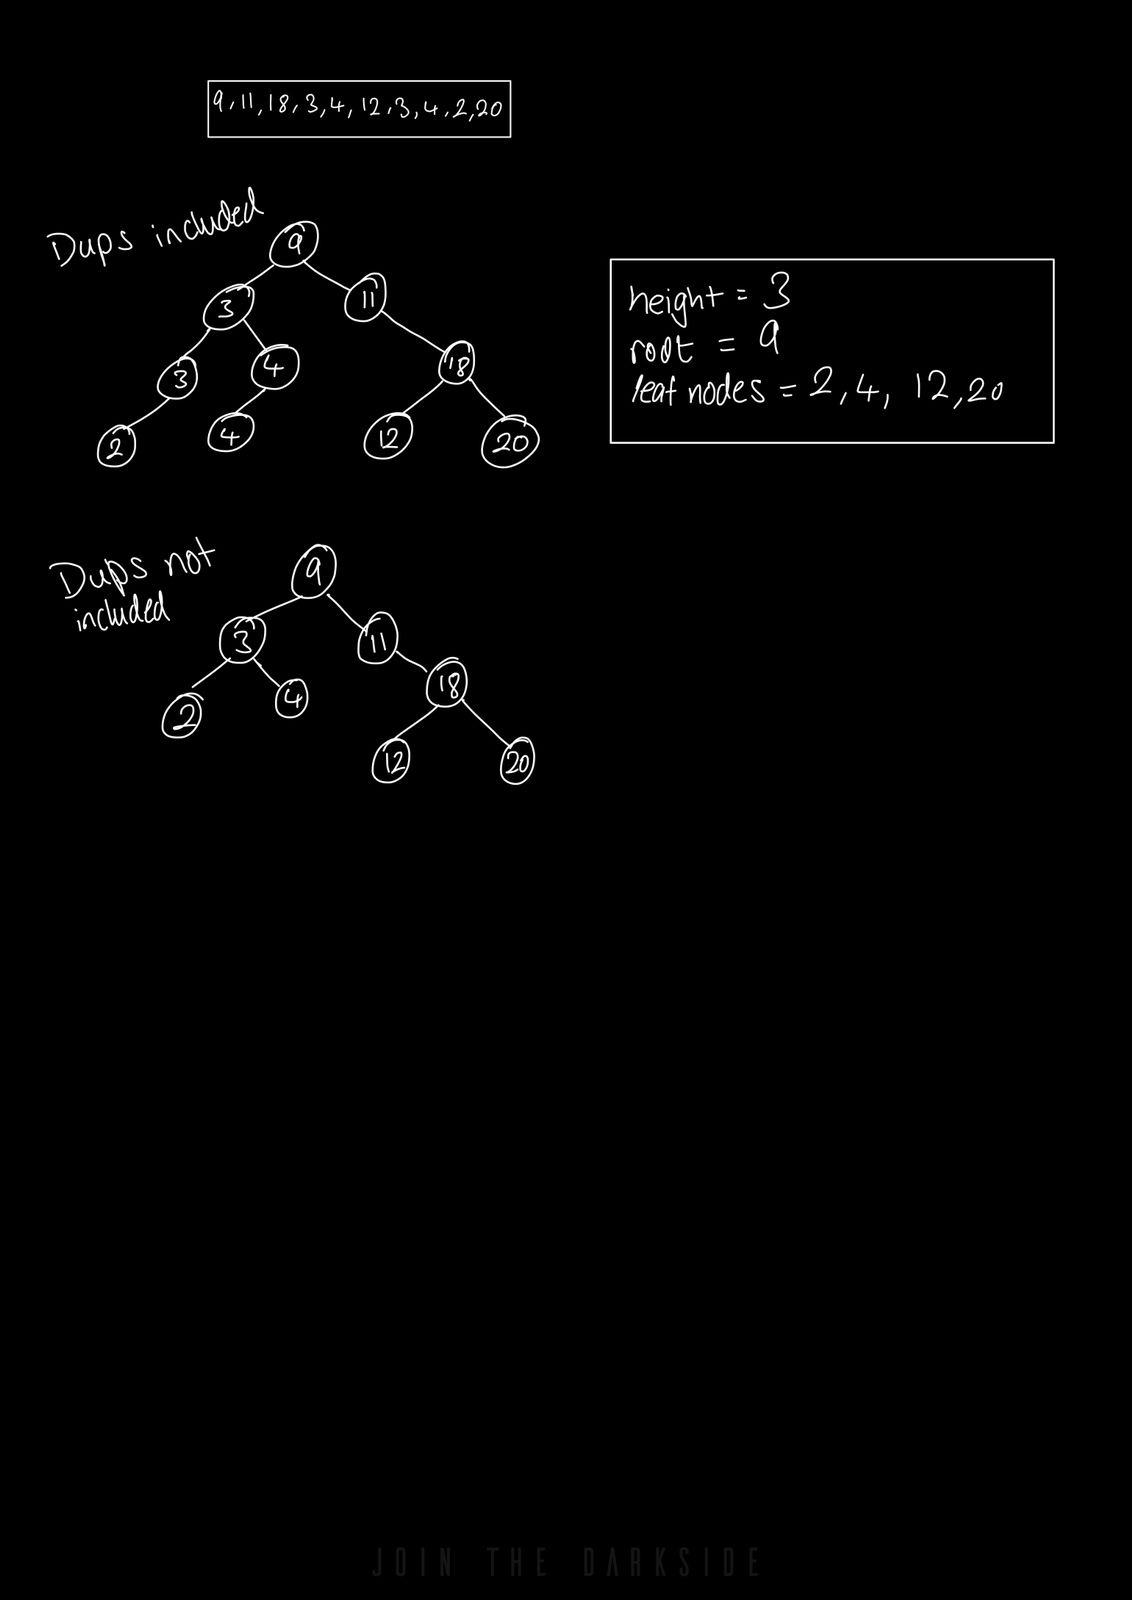 9, 11, 18, 3, 4, 12, 3, 4, 2, 20
Dups included
9
3 11
3 4 18
2 4 12 20
height = 3
root = 9
leaf nodes = 2, 4, 12, 20
Dups not
included
9
3 11
2 4 18
12 20
JOIN THE DARKSIDE